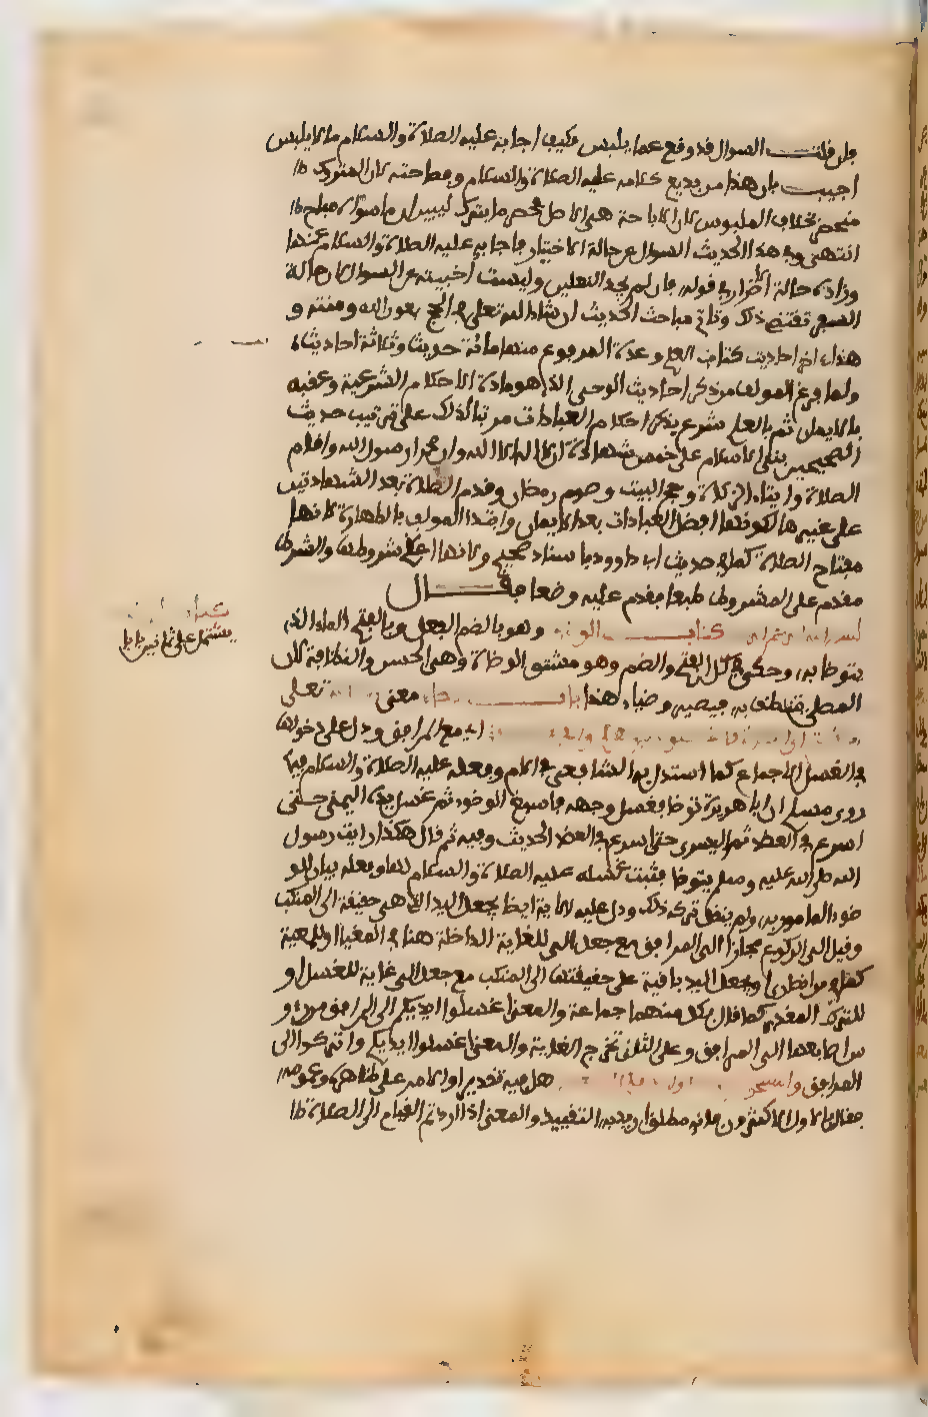 فإن قلت السوال قد وقع عما يلبس فكيف اجابه عليه الصلاة والسلام بما لا يلبس
اجيب بان هذا من بديع كلامه عليه الصلاة والسلام وفصاحته لان المتروك
منحصر بخلاف الملبوس لان الاباحة هي الاصل فحصر ما يترك ليبين ان ما سواه مباح
انتهى وفي هذا الحديث السوال عن حالة الاختيار فاجابه عليه الصلاة والسلام عنها
وزاده حالة الاضطرار في قوله فان لم يجد النعلين وليست اجنبية عن السوال لان حالة
السفر تقتضي ذلك وتاتي مباحث الحديث ان شاء الله تعلى في الحج بعون الله ومنته و
هذا اخر احاديث كتاب العلم وعدة المرفوع منها مائة حديث وثلاثة احاديث
ولما فرغ المولف من ذكر احاديث الوحي الذي هو مادة الاحكام الشرعية وعقبه
بالايمان ثم بالعلم شرع يذكر احكام العبادات مرتبا لذلك على ترتيب حديث
الصحيحين بني الاسلام على خمس شهادة ان لا اله الا الله وان محمدا رسول الله واقام
الصلاة وايتاء الزكاة وحج البيت وصوم رمضان وقدم الصلاة بعد الشهادتين
على غيرها لكونها افضل العبادات بعد الايمان وابتدا المولف بالطهارة لانها
مفتاح الصلاة كما في حديث ابي داوود باسناد صحيح ولانها اعظم شروطها والشرط
مقدم على المشروط طبعا فقدم عليه وضعا فقال
كتاب الوضوء وهو بالضم الفعل وبالفتح الماء الذي
يتوضا به وحكي في كل الفتح والضم وهو مشتق من الوضاءة وهي الحسن والنظافة لان
المصلي يتنظف به فيصير وضيا هذا باب معنى تعلى
اي مع المرافق ودل على دخولها
في الغسل الاجماع كما استدل به الشافعي في الام وفعله عليه الصلاة والسلام فيما
روى مسلم ان ابا هريرة توضا فغسل وجهه فاسبغ الوضوء ثم غسل يده اليمنى حتى
اشرع في العضد ثم اليسرى حتى اشرع في العضد الحديث وفيه ثم قال هكذا رايت رسول
الله صلى الله عليه وسلم يتوضا فثبت غسله عليه الصلاة والسلام لها وفعله بيان للو
ضوء المامور به ولم ينقل تركه ذلك ودل عليه الاية ايضا بجعل اليد التي هي حقيقة الى المنكب
وقيل الى الكوع مجازا الى المرافق مع جعل الى للغاية الداخلة هنا في المغيا او للمعية
او بجعل اليد باقية على حقيقتها الى المنكب مع جعل الى غاية للغسل او
للترك المقدر كما قال بكل منهما جماعة والمعنى اغسلوا ايديكم الى المرافق من رءو
س اصابعها الى المرافق وعلى الثاني تخرج الغاية والمعنى اغسلوا ايديكم واتركوا الى
المرافق وامسحوا هل فيه تقدير او الامر على ظاهره وعمومه
فقال بالاول الاكثرون فانه مطلق اريد به التقييد والمعنى اذا اردتم القيام الى الصلاة
كتاب
يشتمل على ثمانين بابا